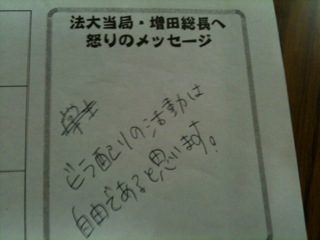 法大当局・増田総長へ
怒りのメッセージ
学生
ビラ配りの活動は
自由であると思います。